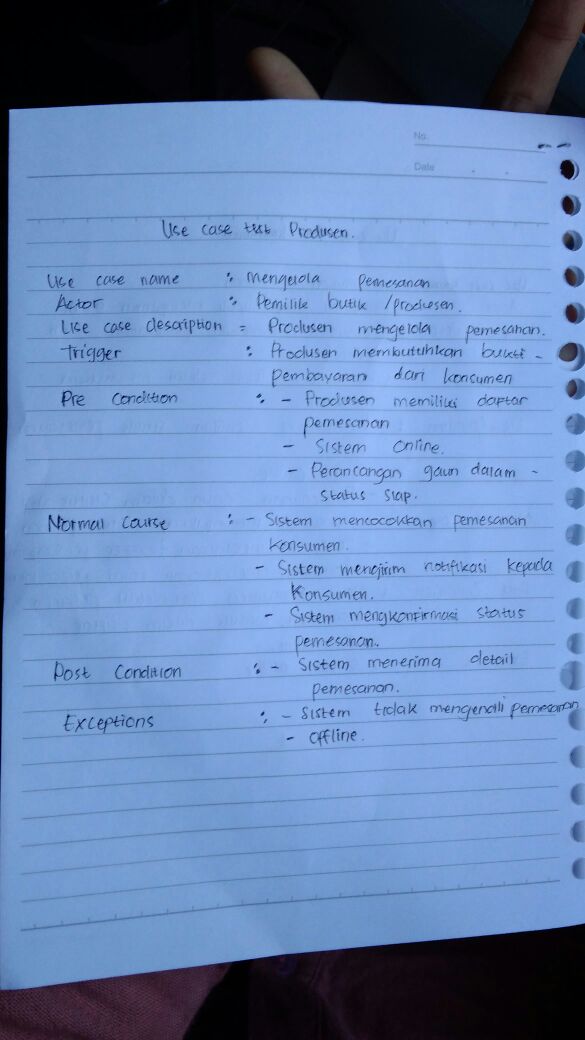 No.
Date
Use case text Produsen.
Use case name : mengelola pemesanan
Actor : Pemilik butik /produsen.
Use case description = Produsen mengelola pemesanan.
Trigger : Produsen membutuhkan bukti -
pembayaran dari konsumen
Pre Condition : - Produsen memiliki daftar
pemesanan
- Sistem Online.
- Perancangan gaun dalam -
status siap.
Normal Course : - Sistem mencocokkan pemesanan
Konsumen.
- Sistem mengirim notifikasi kepada
Konsumen.
- Sistem mengkonfirmasi status
pemesanan.
Post Condition : - Sistem menerima detail
pemesanan.
Exceptions : - Sistem tidak mengenali pemesanan
- Offline.